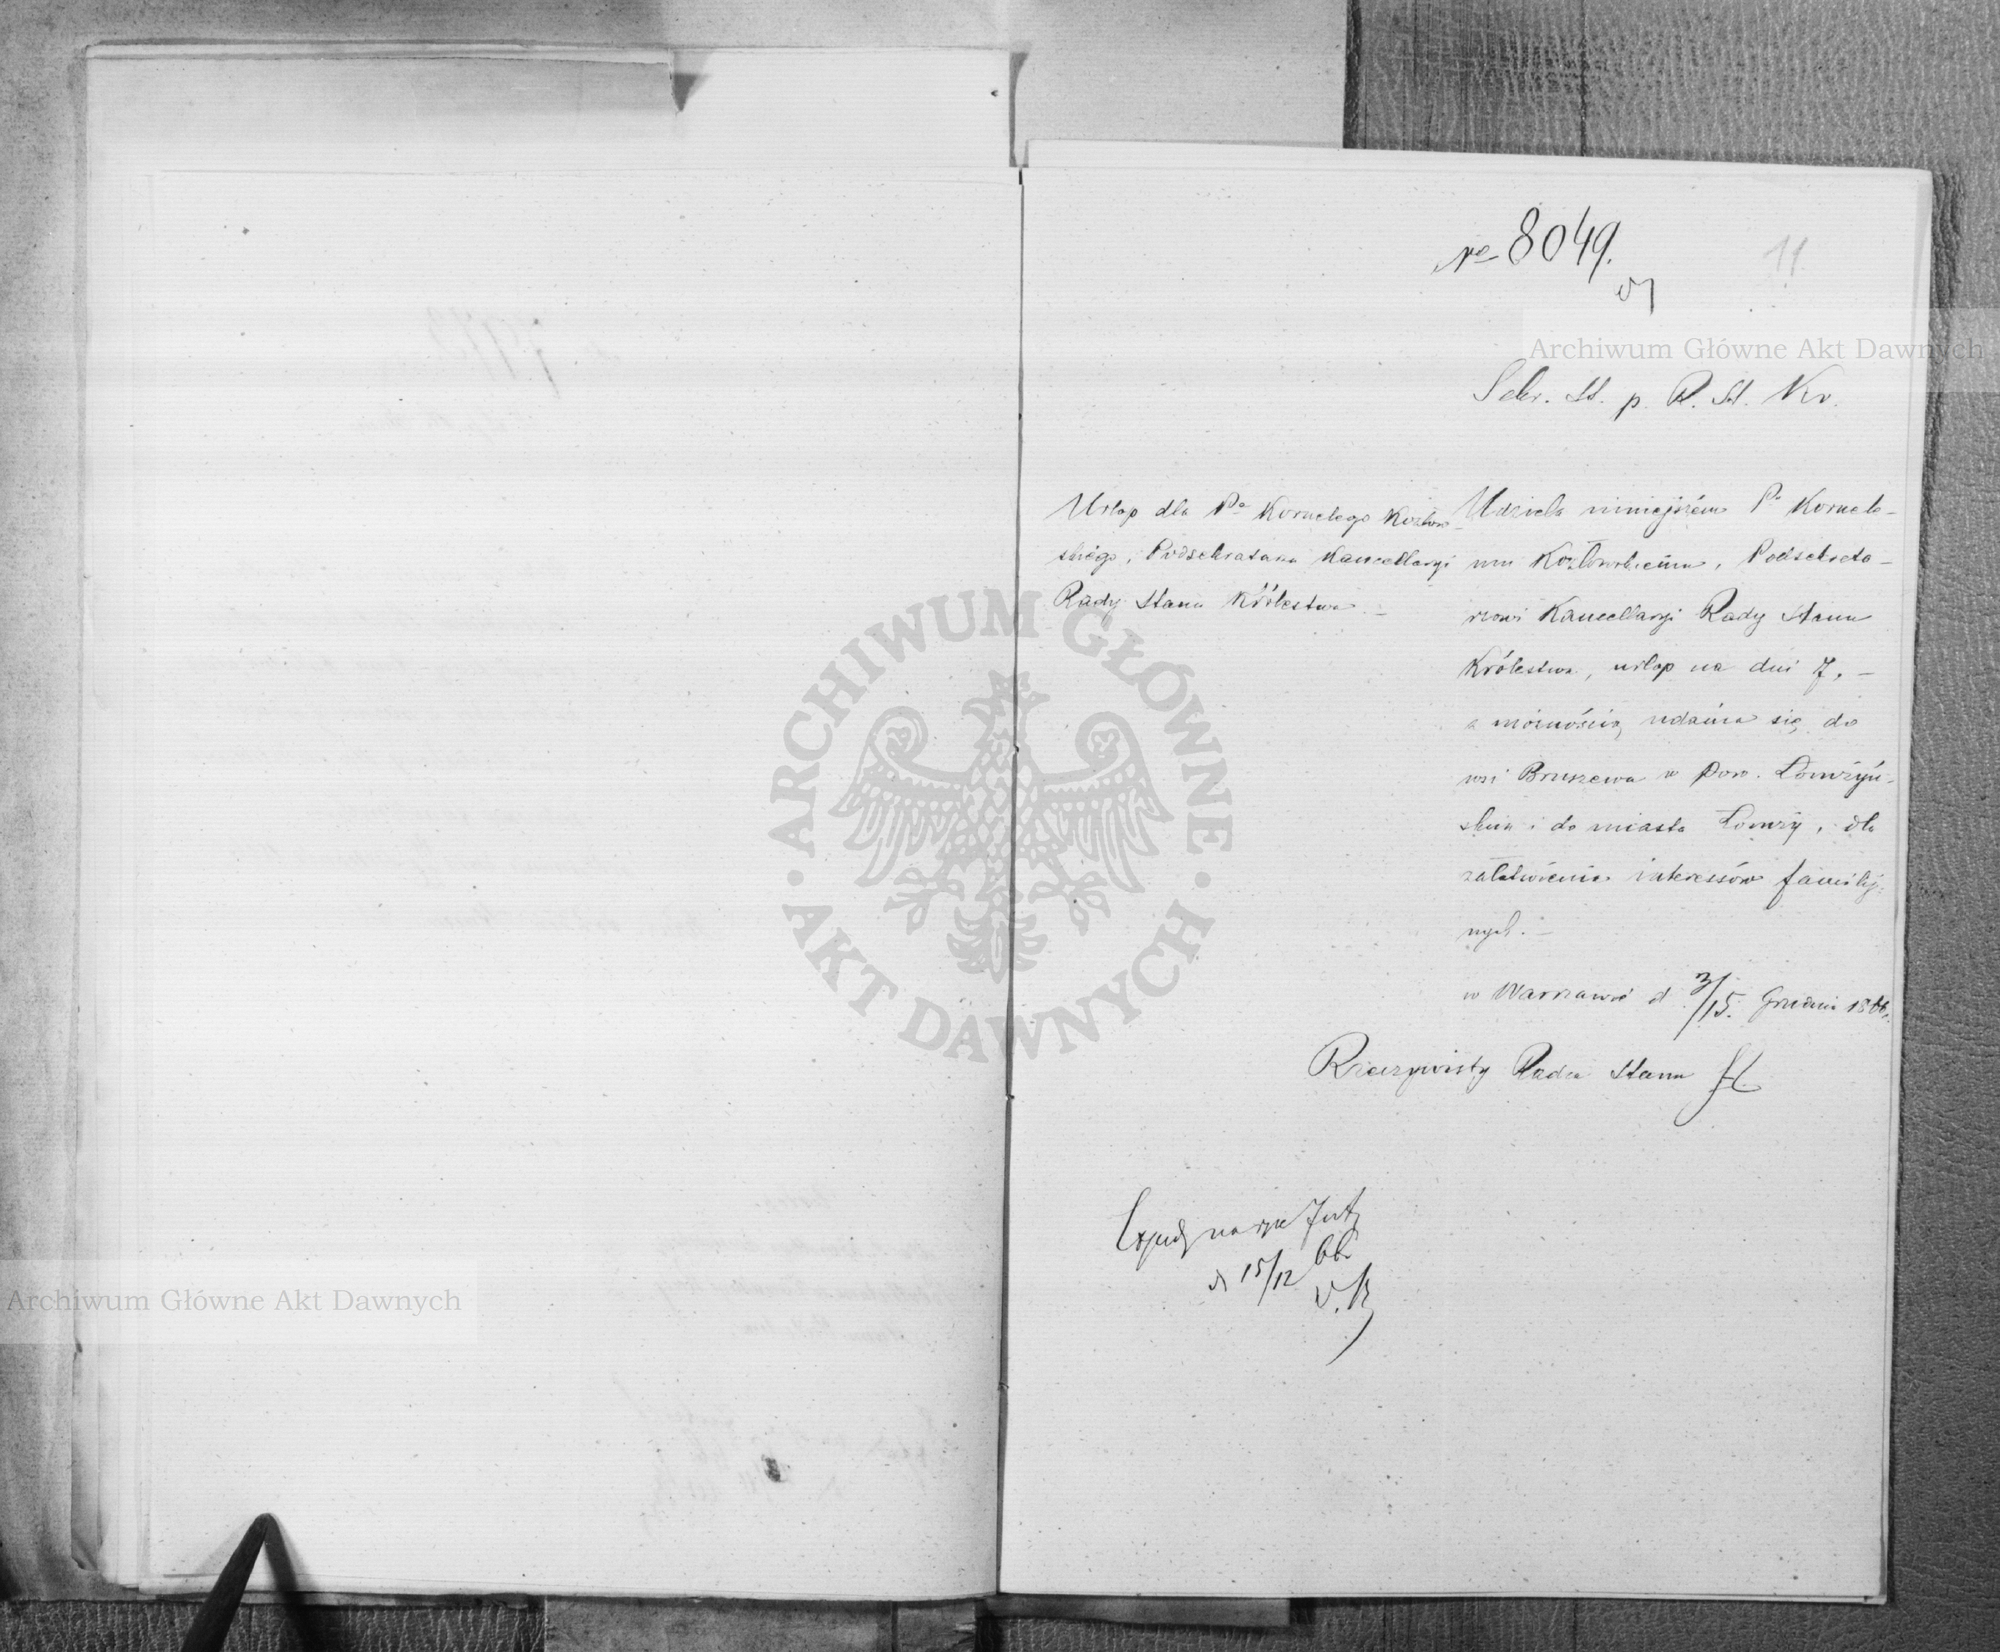 No 8049.
11
Archiwum Główne Akt Dawnych
Sekr. St. p. R. St. Kr.
Urlop dla Pa Kornelego Kozłow-
skiego, Podsekretarza Kancellaryi
Rady Stanu Królestwa. –
Udziela niniejszém Pu Kornele-
mu Kozłowskiemu, Podsekreta-
rzowi Kancellaryi Rady Stanu
Królestwa, urlop na dni 7, –
z możnością udania się do
wsi Bruszewa w Pow. Łomżyń-
skim i do miasta Łomży, dla
załatwienia interessów familij-
nych. –
w Warszawie d 3/15. Grudnia 1866.
Rzeczywisty Radca Stanu
d 15/12 66
ARCHIWUM GŁÓWNE
AKT DAWNYCH
Archiwum Główne Akt Dawnych